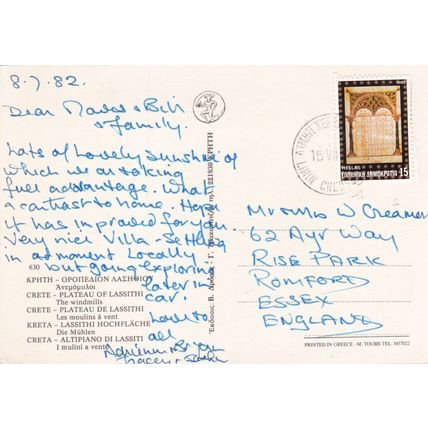 8.7.82.
Dear & Bill
& Family.
Lots of Lovely Sunshine of
which we are taking
full advantage. What
a contrast to home. Hope
it has improved for you.
Very nice Villa - Settling
in at moment Locally
but going exploring
later in
car.
Love to
all
630
ΚΡΗΤΗ - ΟΡΟΠΕΔΙΟΝ ΛΑΣΗΘΙΟΥ
Ἀνεμόμυλοι
CRETE - PLATEAU OF LASSITHI
The windmills
CRETE - PLATEAU DE LASSITHI
Les moulins à vent
KRETA - LASSITHI HOCHFLÄCHE
Die Mühlen
CRETA - ALTIPIANO DI LASSITI
I mulini a vento
ΚΡΗΤΗ
HELLAS
ΕΛΛΗΝΙΚΗ ΔΗΜΟΚΡΑΤΙΑ 15
Mr & Mrs W Creamer
62 Ayr Way
RISE PARK
ROMFORD
ESSEX
ENGLAND
PRINTED IN GREECE - M. TOUBIS TEL. 3457022